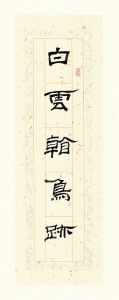 白雲翰鳥跡